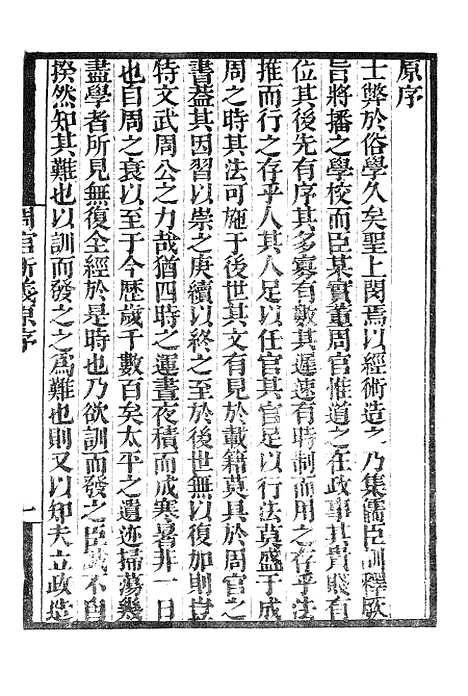 原序
士弊於俗學久矣聖上閔焉以經術造之乃集儒臣訓釋厥
旨將播之學校而臣某實董周官惟道之在政事其貴賤有
位其後先有序其多寡有數其遲速有時制而用之存乎法
推而行之存乎人其人足以任官其官足以行法莫盛于成
周之時其法可施于後世其文有見於載籍莫具於周官之
書葢其因習以崇之庚續以終之至於後世無以復加則豈
特文武周公之力哉猶四時之運晝夜積而成寒暑非一日
也自周之衰以至于今歷歲千數百矣太平之遺迹掃蕩幾
盡學者所見無復全經於是時也乃欲訓而發之臣某不自
揆然知其難也以訓而發之之為難也則又以知夫立政造
周官新義原序
一